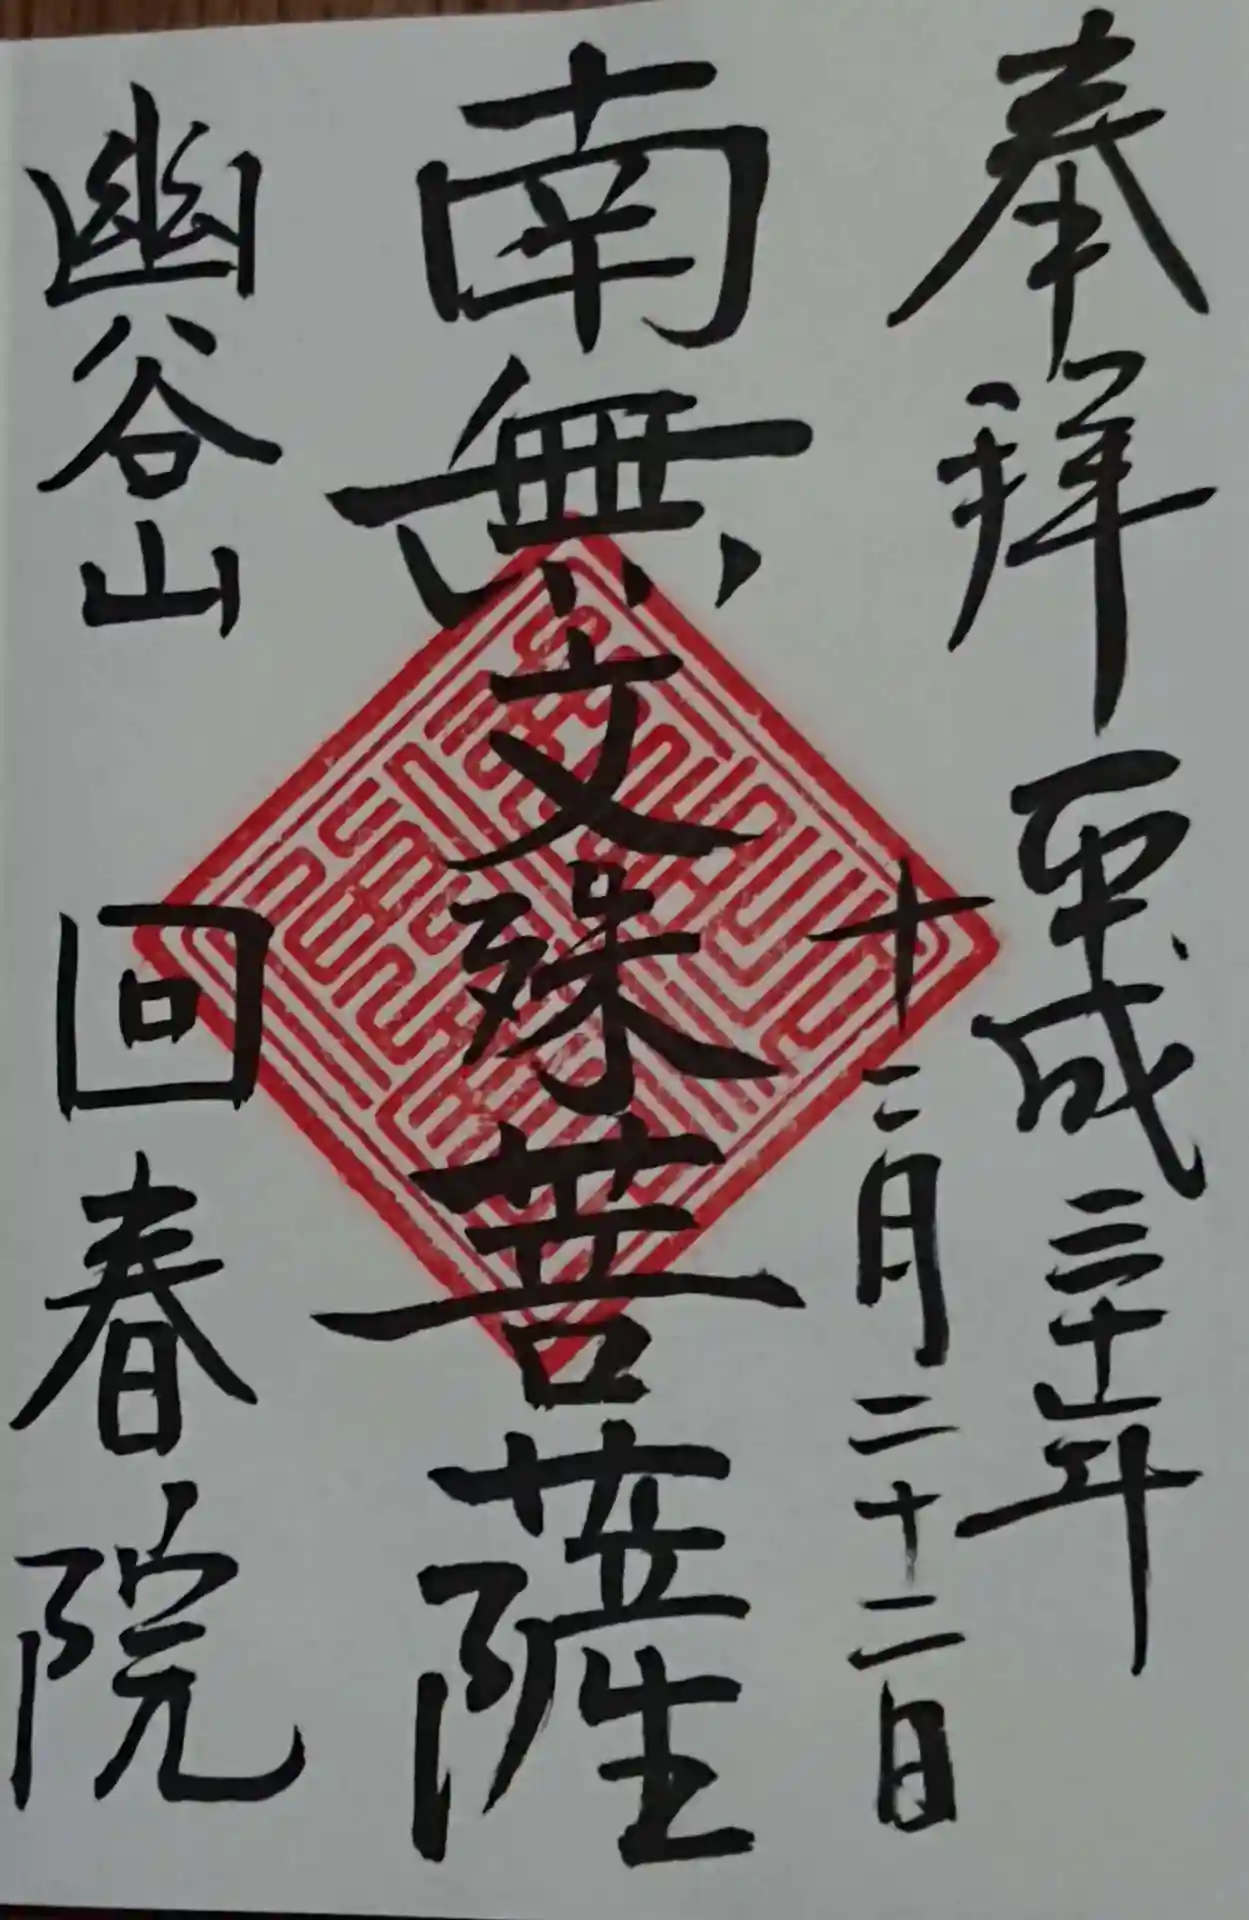 奉拝 平成三十年
十二月二十二日
南無文殊菩薩
幽谷山 回春院